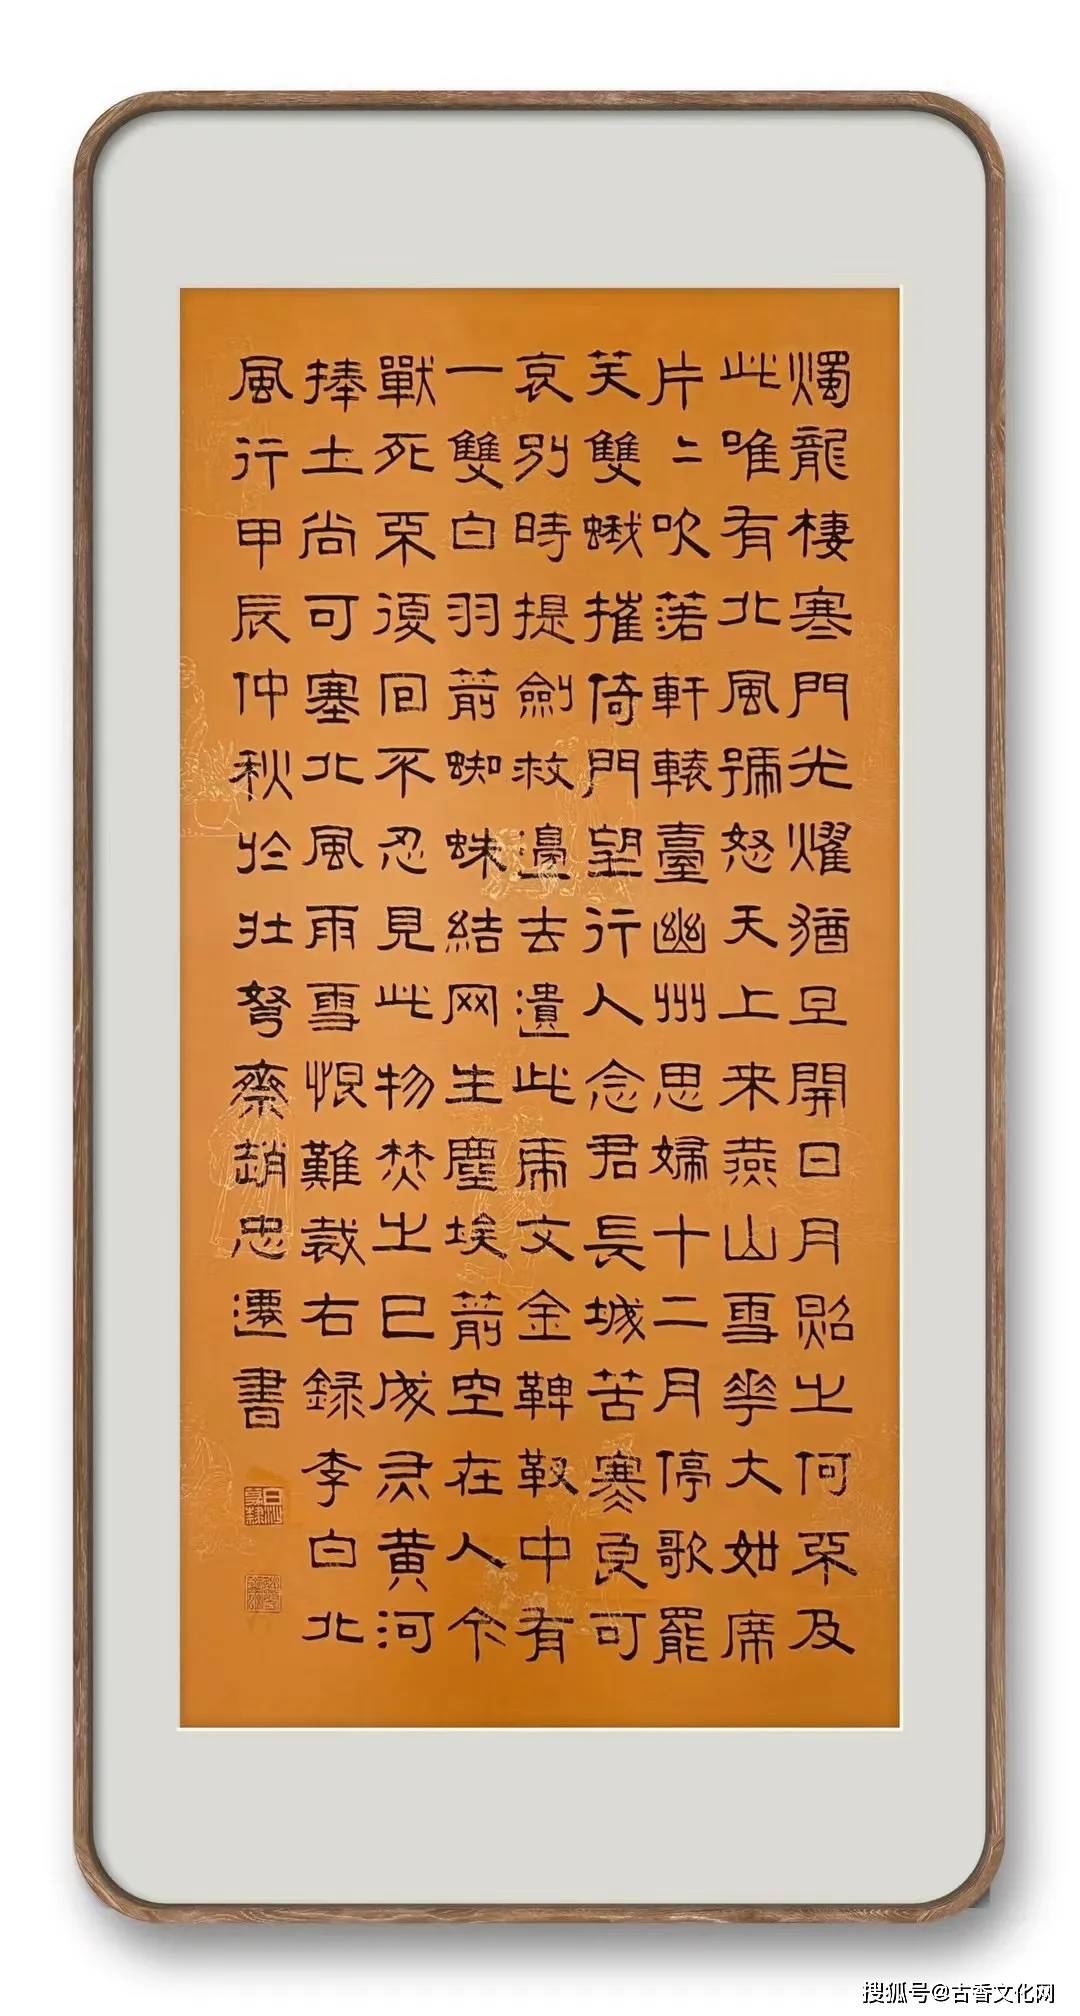 燭龍棲寒門光燿猶旦開日月照之何不及
此唯有北風號怒天上来燕山雪華大如席
片〻吹落軒轅臺幽州思婦十二月停歌罷
笑雙蛾摧倚門望行人念君長城苦寒良可
哀別時提劍救邊去遺此虎文金鞞靫中有
一雙白羽箭蜘蛛結网生塵埃箭空在人今
戰死不復回不忍見此物焚之已成灰黄河
捧土尚可塞北風雨雪恨難裁右録李白北
風行甲辰仲秋於壯弩齋趙忠遷書
搜狐号@古香文化网